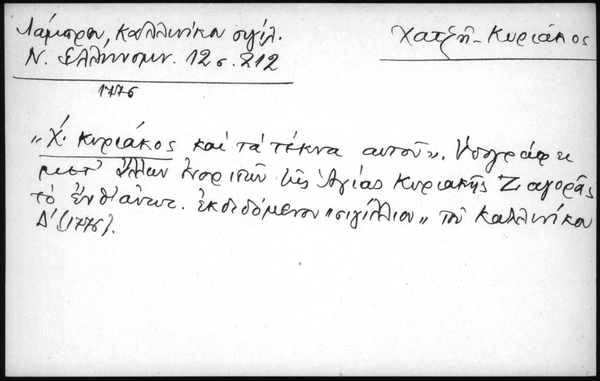 Λάμπρου, Καλλινίκου σιγίλ.
Ν. Ελληνομν. 12 σ. 212
Χατζῆ-Κυριάκος
1776
"Χ. Κυριάκος καὶ τὰ τέκνα αὐτοῦ". Ὑπογράφει
μετ' ἄλλων ἐνοριτῶν τῆς Ἁγίας Κυριακῆς Ζαγορᾶς
τὸ ἐκδιδόμενον "σιγίλλιον" τοῦ Καλλινίκου
Δ' (1776).